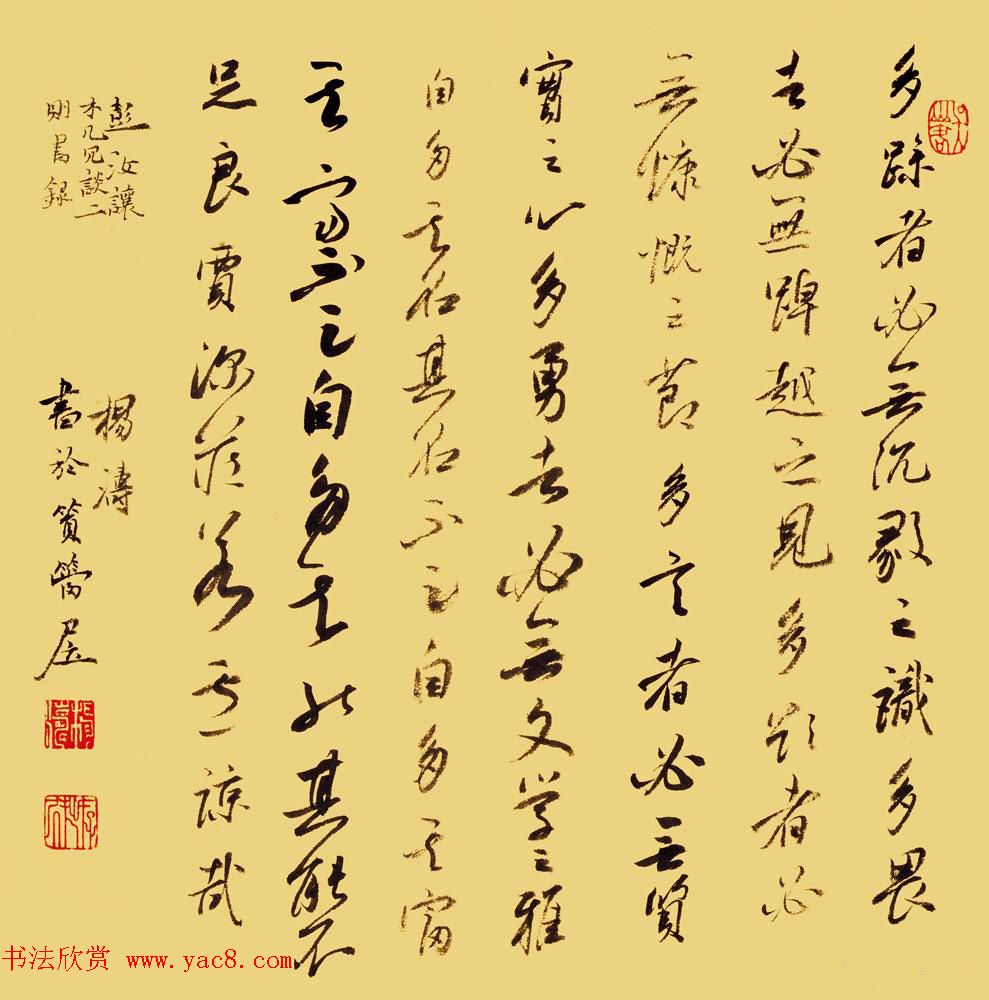 多躁者必無沉毅之識多畏
者必無踔越之見多欲者必
無慷慨之節多言者必無質
實之心多勇者必無文學之雅
自多其名其名不足自多其富
其富不足自多其能其能不
足良賈深藏若虛諒哉
彭汝讓
木几冗談二
則書錄
楊濤
書於篔簹屋
书法欣赏 www.yac8.com